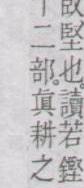 故堅也。讀若鏗
十二部。眞耕之